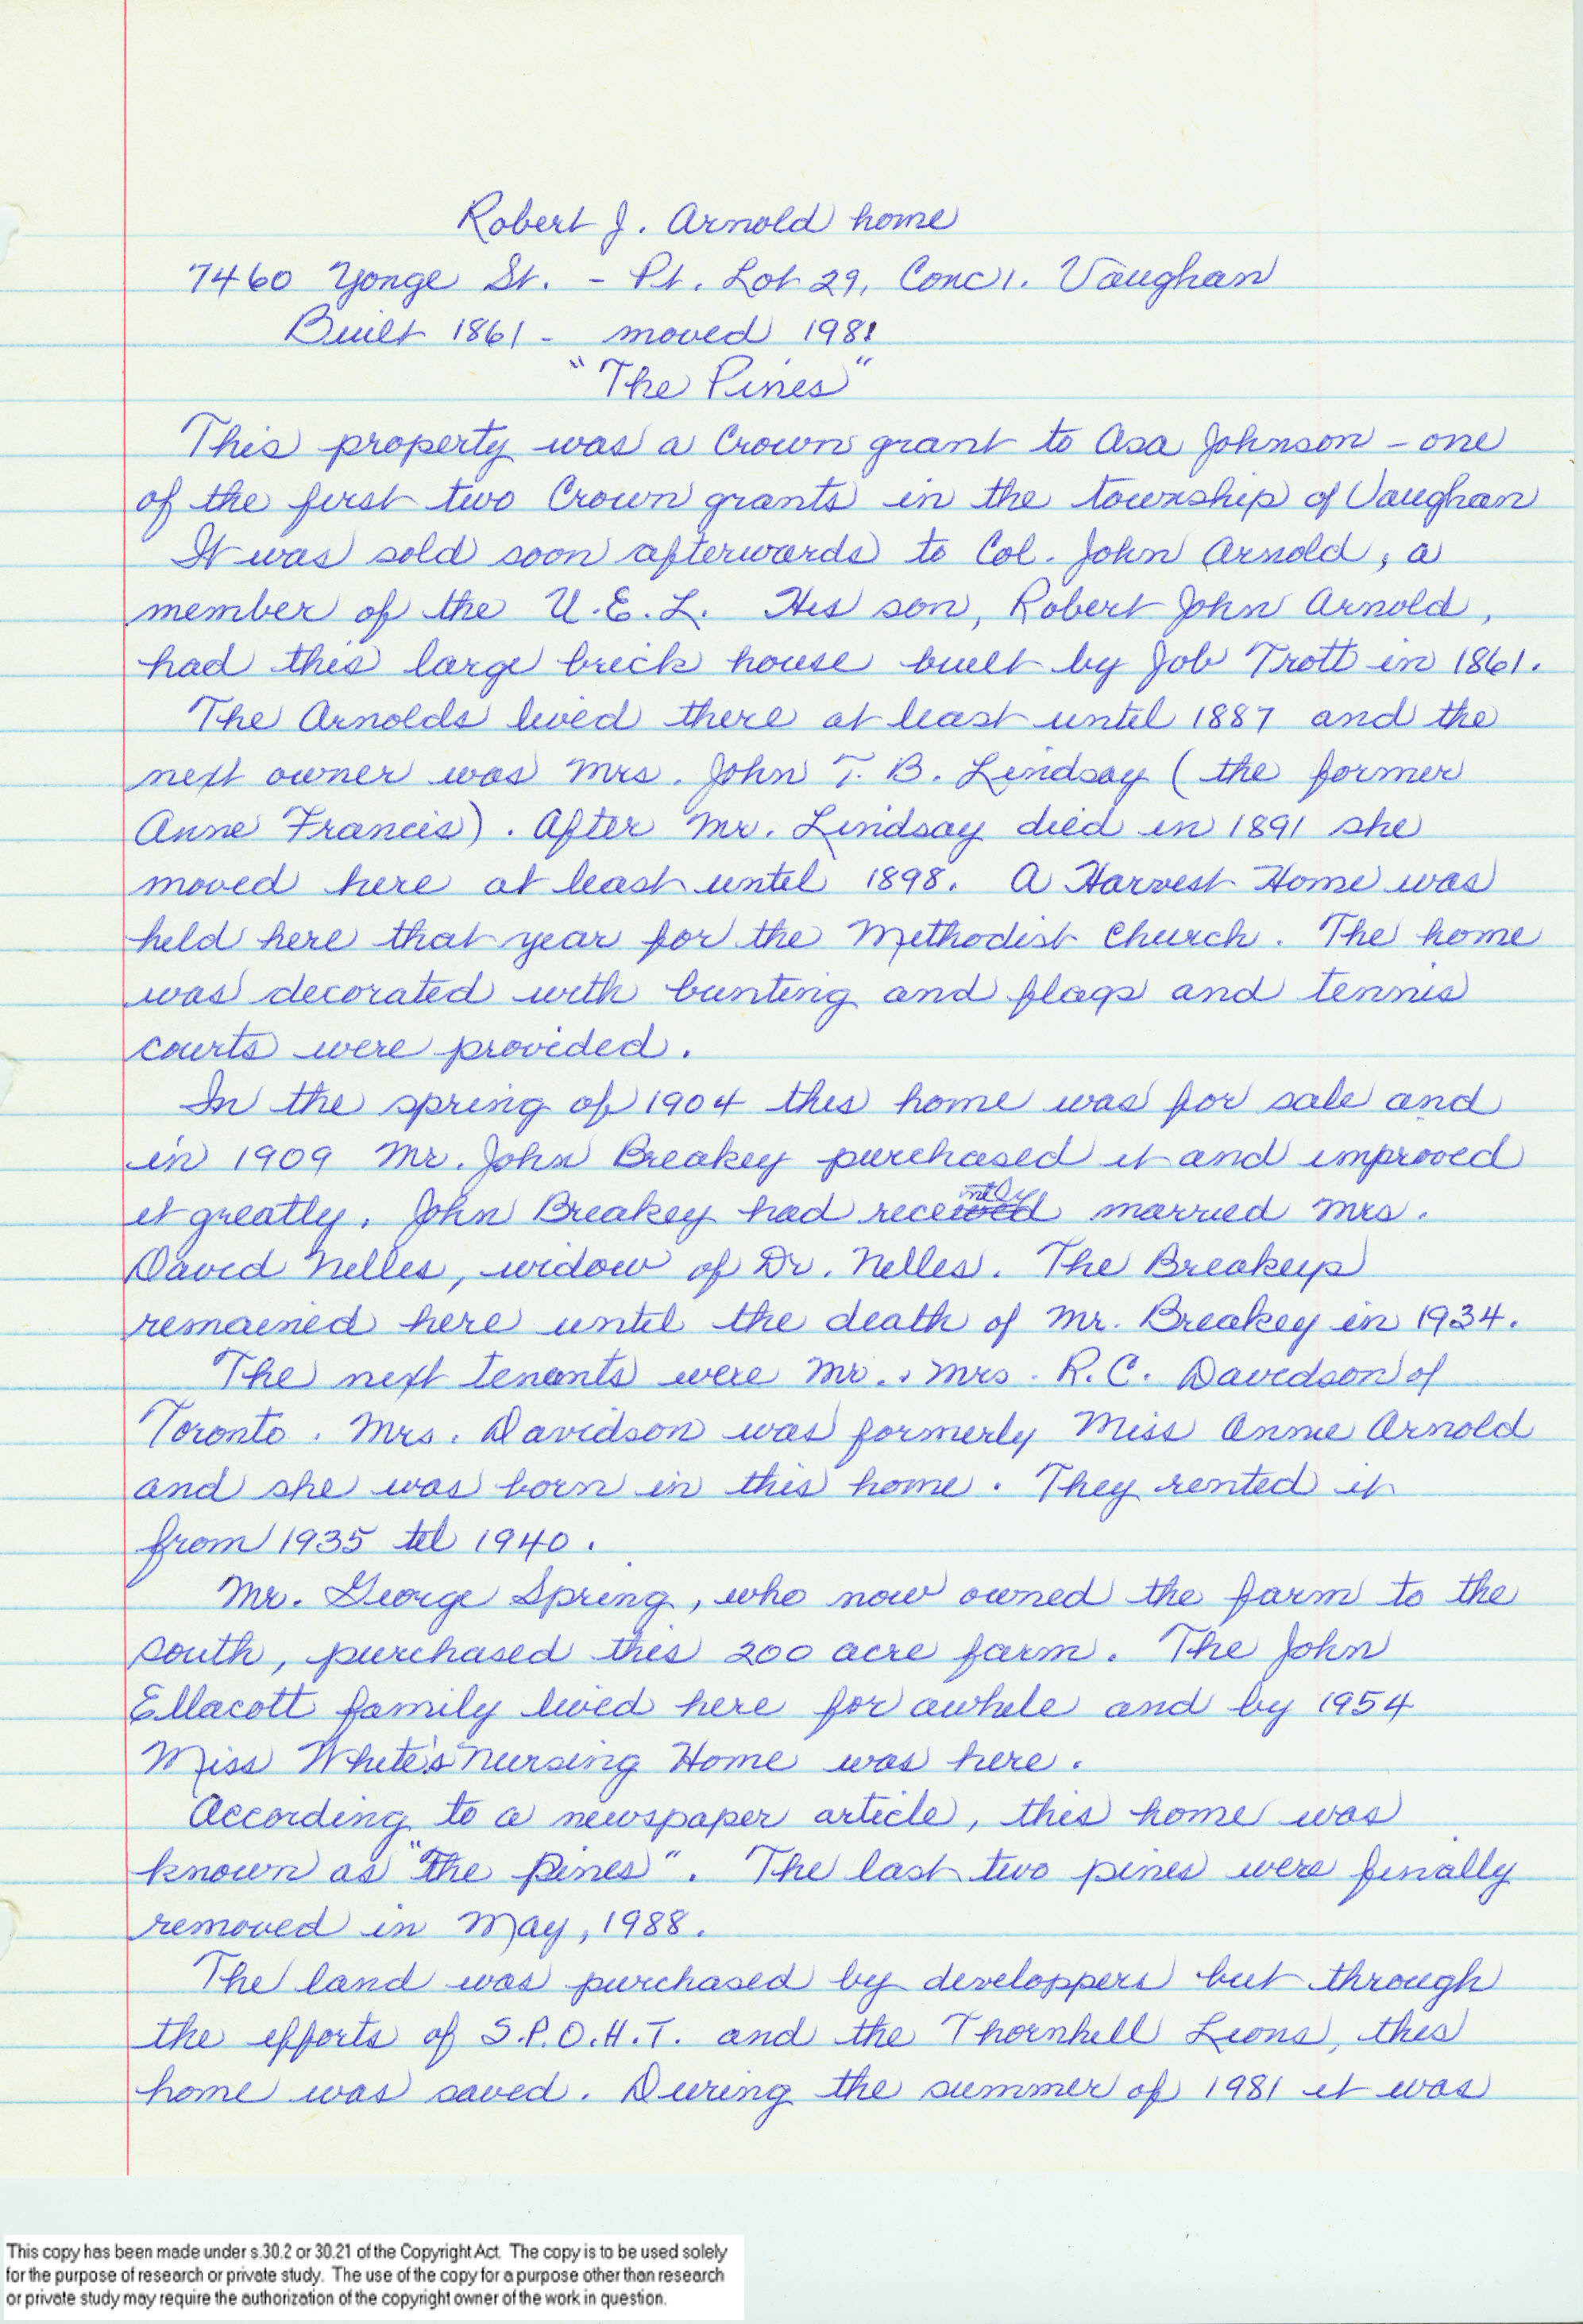 Robert J. Arnold home
7460 Yonge St. - Pt. Lot 29, Conc 1. Vaughan
Built 1861 - moved 1981
"The Pines"
This property was a Crown grant to Asa Johnson - one
of the first two Crown grants in the township of Vaughan
It was sold soon afterwards to Col. John Arnold, a
member of the U.E.L. His son, Robert John Arnold,
had this large brick house built by Job Trott in 1861.
The Arnolds lived there at least until 1887 and the
next owner was Mrs. John T. B. Lindsay (the former
Anne Francis). After Mr. Lindsay died in 1891 she
moved here at least until 1898. A Harvest Home was
held here that year for the Methodist Church. The home
was decorated with bunting and flags and tennis
courts were provided.
In the spring of 1904 this home was for sale and
in 1909 Mr. John Breakey purchased it and improved
it greatly. John Breakey had recently married Mrs.
David Nelles, widow of Dr. Nelles. The Breakeys
remained here until the death of Mr. Breakey in 1934.
The next tenants were Mr. & Mrs. R.C. Davidson of
Toronto. Mrs. Davidson was formerly Miss Annie Arnold
and she was born in this home. They rented it
from 1935 til 1940.
Mr. George Spring, who now owned the farm to the
south, purchased this 200 acre farm. The John
Ellacott family lived here for awhile and by 1954
Miss White's Nursing Home was here.
According to a newspaper article, this home was
known as "The Pines". The last two pines were finally
removed in May, 1988.
The land was purchased by developpers but through
the efforts of S.P.O.H.T. and the Thornhill Lions, this
home was saved. During the summer of 1981 it was
This copy has been made under s.30.2 or 30.21 of the Copyright Act. The copy is to be used solely
for the purpose of research or private study. The use of the copy for a purpose other than research
or private study may require the authorization of the copyright owner of the work in question.